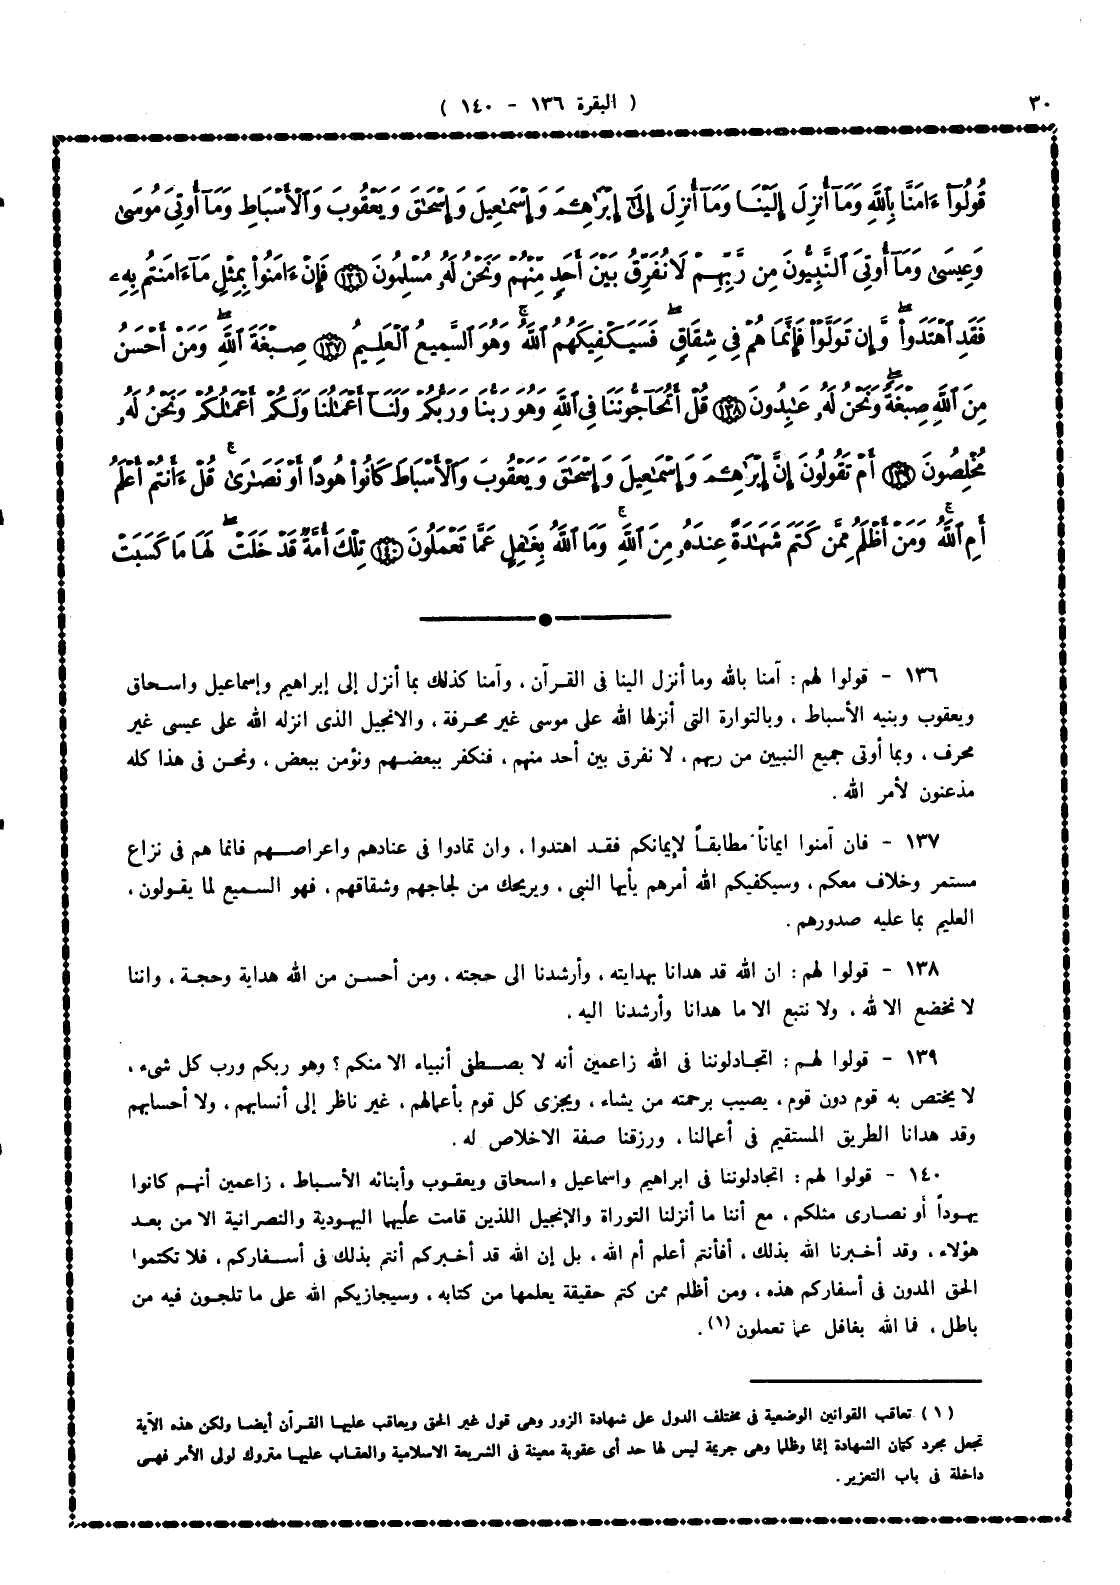 ٣٠
( البقرة ١٣٦ – ١٤٠ )
قُولُوٓا۟ ءَامَنَّا بِٱللَّهِ وَمَآ أُنزِلَ إِلَيْنَا وَمَآ أُنزِلَ إِلَىٰٓ إِبْرَٰهِـۧمَ وَإِسْمَٰعِيلَ وَإِسْحَٰقَ وَيَعْقُوبَ وَٱلْأَسْبَاطِ وَمَآ أُوتِىَ مُوسَىٰ
وَعِيسَىٰ وَمَآ أُوتِىَ ٱلنَّبِيُّونَ مِن رَّبِّهِمْ لَا نُفَرِّقُ بَيْنَ أَحَدٍ مِّنْهُمْ وَنَحْنُ لَهُۥ مُسْلِمُونَ ﴿١٣٦﴾ فَإِنْ ءَامَنُوا۟ بِمِثْلِ مَآ ءَامَنتُم بِهِۦ
فَقَدِ ٱهْتَدَوا۟ ۖ وَّإِن تَوَلَّوْا۟ فَإِنَّمَا هُمْ فِى شِقَاقٍ ۖ فَسَيَكْفِيكَهُمُ ٱللَّهُ ۚ وَهُوَ ٱلسَّمِيعُ ٱلْعَلِيمُ ﴿١٣٧﴾ صِبْغَةَ ٱللَّهِ ۖ وَمَنْ أَحْسَنُ
مِنَ ٱللَّهِ صِبْغَةً ۖ وَنَحْنُ لَهُۥ عَٰبِدُونَ ﴿١٣٨﴾ قُلْ أَتُحَآجُّونَنَا فِى ٱللَّهِ وَهُوَ رَبُّنَا وَرَبُّكُمْ وَلَنَآ أَعْمَٰلُنَا وَلَكُمْ أَعْمَٰلُكُمْ وَنَحْنُ لَهُۥ
مُخْلِصُونَ ﴿١٣٩﴾ أَمْ تَقُولُونَ إِنَّ إِبْرَٰهِـۧمَ وَإِسْمَٰعِيلَ وَإِسْحَٰقَ وَيَعْقُوبَ وَٱلْأَسْبَاطَ كَانُوا۟ هُودًا أَوْ نَصَٰرَىٰ ۗ قُلْ ءَأَنتُمْ أَعْلَمُ
أَمِ ٱللَّهُ ۗ وَمَنْ أَظْلَمُ مِمَّن كَتَمَ شَهَٰدَةً عِندَهُۥ مِنَ ٱللَّهِ ۗ وَمَا ٱللَّهُ بِغَٰفِلٍ عَمَّا تَعْمَلُونَ ﴿١٤٠﴾ تِلْكَ أُمَّةٌ قَدْ خَلَتْ ۖ لَهَا مَا كَسَبَتْ
١٣٦ – قولوا لهم : آمنا بالله وما أنزل الينا فى القرآن ، وآمنا كذلك بما أنزل إلى إبراهيم وإسماعيل واسحاق
ويعقوب وبنيه الأسباط ، وبالتوارة التى أنزلها الله على موسى غير محرفة ، والانجيل الذى انزله الله على عيسى غير
محرف ، وبما أوتى جميع النبيين من ربهم ، لا نفرق بين أحد منهم ، فنكفر ببعضهم ونؤمن ببعض ، ونحن فى هذا كله
مذعنون لأمر الله .
١٣٧ – فان آمنوا ايماناً مطابقاً لإيمانكم فقد اهتدوا ، وان تمادوا فى عنادهم واعراضهم فانما هم فى نزاع
مستمر وخلاف معكم ، وسيكفيكم الله أمرهم يأيها النبى ، ويريحك من لجاجهم وشقاقهم ، فهو السميع لما يقولون ،
العليم بما عليه صدورهم .
١٣٨ – قولوا لهم : ان الله قد هدانا بهدايته ، وأرشدنا الى حجته ، ومن أحسن من الله هداية وحجة ، واننا
لا نخضع الا لله ، ولا نتبع الا ما هدانا وأرشدنا اليه .
١٣٩ – قولوا لهم : اتجادلوننا فى الله زاعمين أنه لا يصطفى أنبياء الا منكم ؟ وهو ربكم ورب كل شىء ،
لا يختص به قوم دون قوم ، يصيب برحمته من يشاء ، ويجزى كل قوم بأعمالهم ، غير ناظر إلى أنسابهم ، ولا أحسابهم
وقد هدانا الطريق المستقيم فى أعمالنا ، ورزقنا صفة الاخلاص له .
١٤٠ – قولوا لهم : اتجادلوننا فى ابراهيم واسماعيل واسحاق ويعقوب وأبنائه الأسباط ، زاعمين أنهم كانوا
يهوداً أو نصارى مثلكم ، مع أننا ما أنزلنا التوراة والإنجيل اللذين قامت عليها اليهودية والنصرانية الا من بعد
هؤلاء ، وقد أخبرنا الله بذلك ، أفأنتم أعلم أم الله ، بل إن الله قد أخبركم أنتم بذلك فى أسفاركم ، فلا تكتموا
الحق المدون فى أسفاركم هذه ، ومن أظلم ممن كتم حقيقة يعلمها من كتابه ، وسيجازيكم الله على ما تلجون فيه من
باطل ، فما الله بغافل عما تعملون (١) .
( ١ ) تعاقب القوانين الوضعية فى مختلف الدول على شهادة الزور وهى قول غير الحق ويعاقب عليها القرآن أيضا ولكن هذه الآية
تجعل مجرد كتمان الشهادة إثما وظلما وهى جريمة ليس لها حد أى عقوبة معينة فى الشريعة الاسلامية والعقاب عليها متروك لولى الأمر فهى
داخلة فى باب التعزير .